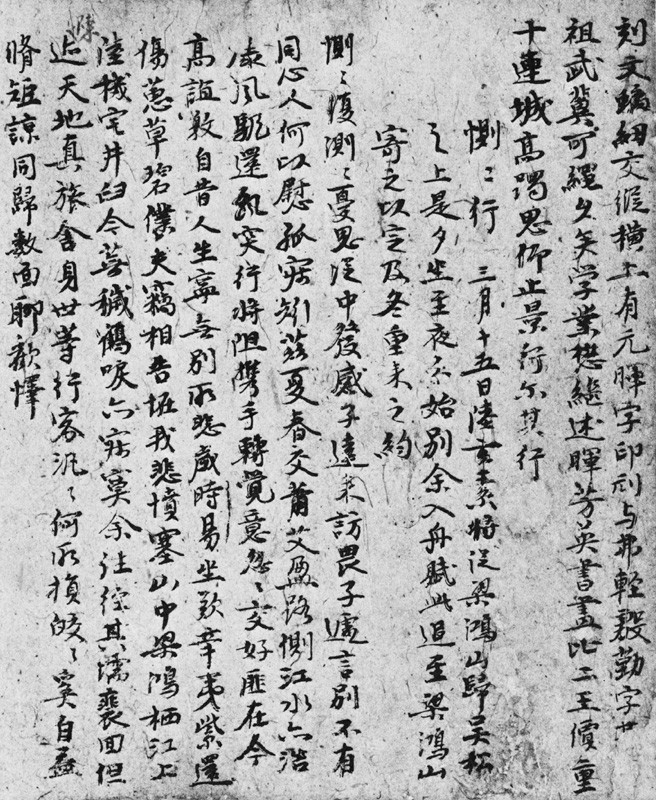 刻文螭細交縱橫上有元暉字印刓与弗輕毅勤字廿
祖武冀可繩久矣學業懋繼述暉芳英書畫比二王價重
十連城高躅思仰止景行尔其行
惻〻行 三月十五日陸玄素將從梁鴻山歸吳松
之上是夕坐至夜分始別余入舟賦此追至梁鴻山
寄之以定及冬重来之約
惻〻復惻〻憂思從中發感子遠来訪畏子遽言別不有
同心人何以慰孤寂矧茲夏春交蕭艾盈路側江水亦浩
凄風颿還飄突行將阻携手轉覺意怱〻交好匪在今
高誼敦自昔人生寧無別所悲歲時易坐歎辛夷紫還
傷蕙草碧僕夫竊相告我悲憤塞山中梁鴻栖江上
陸機宅井臼今蕪穢鶴唳亦寂寞余往從其壖裴回但
陳迹天地真旅舍身世等行客汎〻何所損皎〻奚自益
脩短諒同歸數面聊歡懌